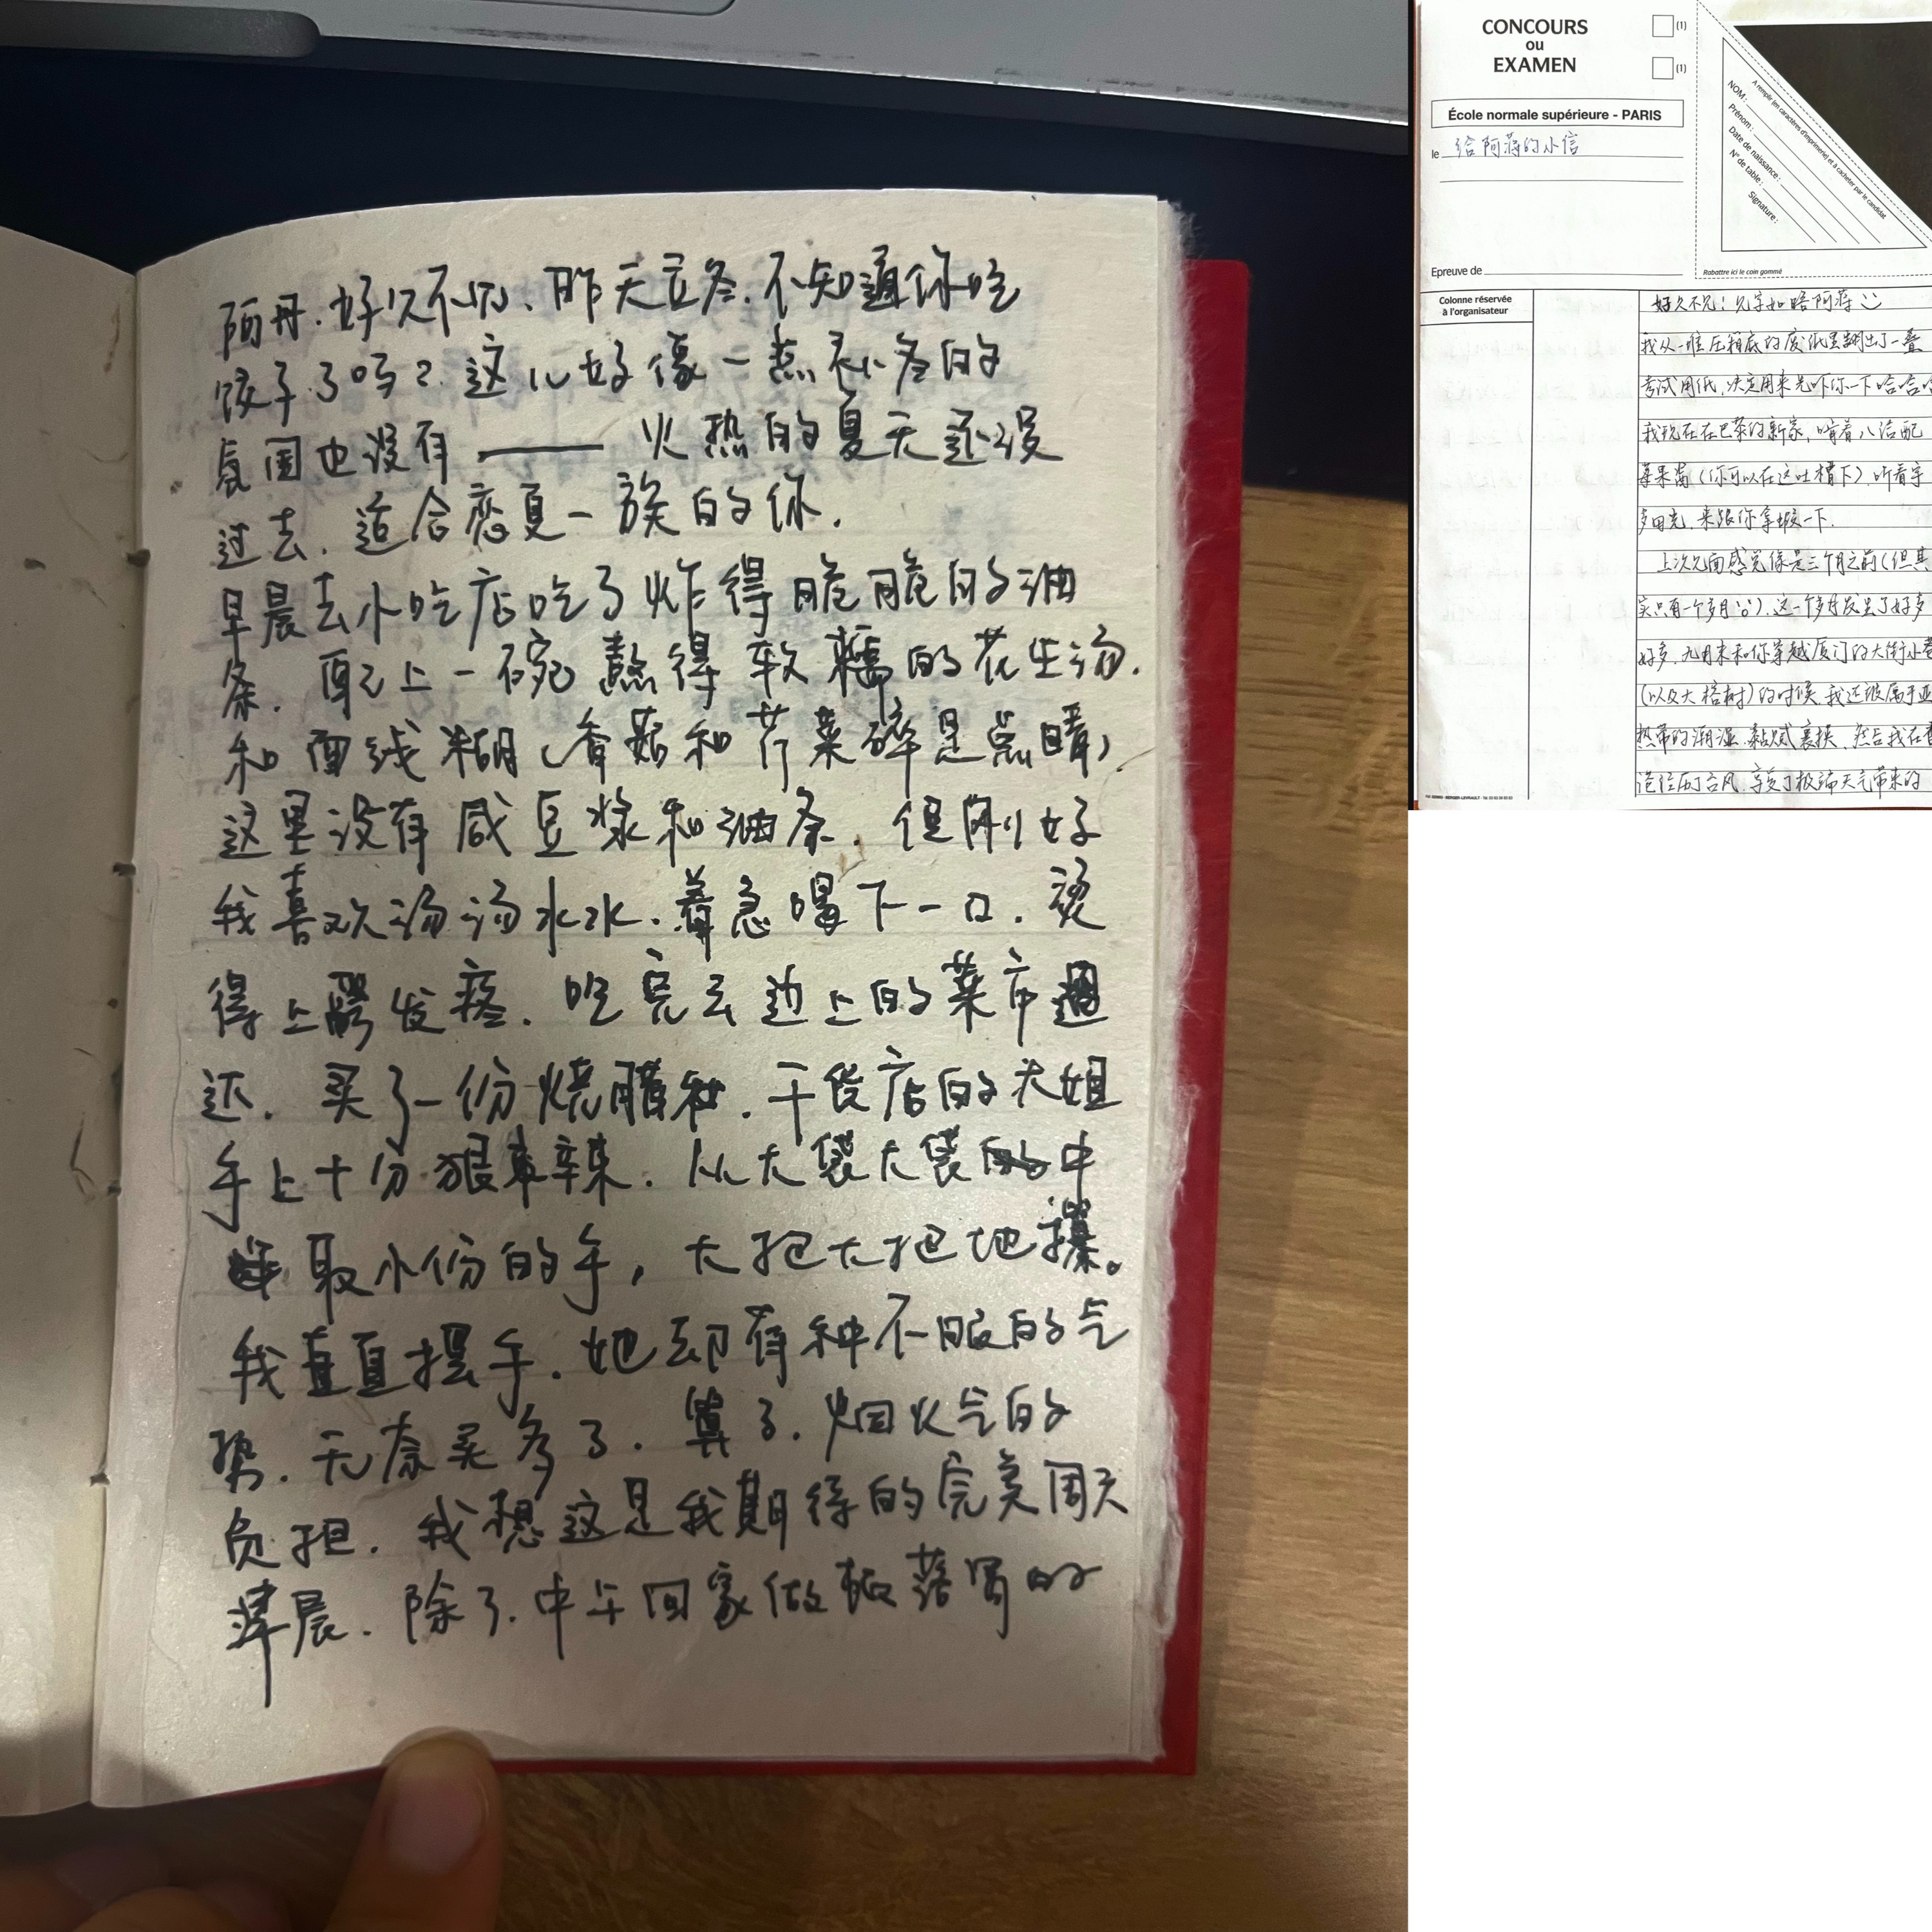 阿丹.好久不见、昨天立冬.不知道你吃
饺子了吗？这儿好像一点立冬的
氛围也没有——火热的夏天还没
过去.适合恋夏一族的你.
早晨去小吃店吃了炸得脆脆的油
条.配上一碗熬得软糯的花生汤.
和面线糊(香菇和芹菜碎是点睛).
这里没有咸豆浆和油条.但刚好
我喜欢汤汤水水.着急喝下一口.烫
得上腭发疼.吃完去边上的菜市
还.买了一份烧腊.干货店的大姐
手上十分狠辣.从大袋大袋中
取小份的手,大把大把地攥。
我直直摆手.她却有种不服的气
势.无奈买多了.算了.烟火气的
负担.我想这是我期待的完美周天
早晨.除了.中午回家做的
CONCOURS
ou
EXAMEN
(1)
(1)
École normale supérieure - PARIS
le 给阿蒋的小信
Epreuve de
A remplir (en caractères d'imprimerie) et à cacheter par le candidat
NOM :
Prénom :
Date de naissance :
N° de table :
Signature :
Rabattre ici le coin gommé
Colonne réservée
à l'organisateur
好久不见！见字如晤阿蒋
我从一堆压箱底的废纸里翻出了一叠
考试用纸,决定用来先吓你一下哈哈哈
我现在在巴黎的新家,啃着八洁配
苹果酱(你可以在这吐槽下).听着宇
多田光.来跟你拿掇一下.
上次见面感觉像是三个月之前(但其
实只有一个多月).这一个多月发生了好多
好多.九月末和你穿越厦门的大街小巷
(以及大榕树)的时候.我还被属于亚
热带的潮湿、黏腻裹挟.然后我在香
港经历了台风.享受了极端天气带来的